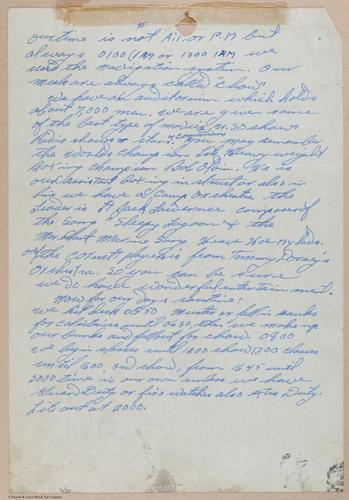 our time is not A.M. or P.M. but
always 0100 (1 AM or 1300 1AM we
used the navigation system. Our
meals are always called "chow"
We have an auditorium which holds
about 2,000 men, we are given some
of the best type of movies, U.S.O shows
Radio shows & stars. You may remember
the worlds champion Lit Heavy weight
Boxing Champion Bob Olin. He is
our assistant Boxing instructor also in
we have a Camp Orchestra the
Leader is Lt Jack Lawrence composer of
the Song "Sleepy Lagoon" & the
Merchant Marine Song Heave Ho My Lads.
the Cornet player is from Tommy Dorsey's
Orchestra. So you can be sure
we do have wonderful entertainment.
Now for our days routine:
we hit deck 0550 Muster or fall in ranks
for calisthenics until 0630, then we make up
our bunks and fall out for chow 0700
we begin classes until 1200 chow 1300 classes
until 1600, 3rd chow, from 1645 until
2000 time is our own unless we have
Guard Duty or fire watches also extra Duty.
Lits out at 2000.